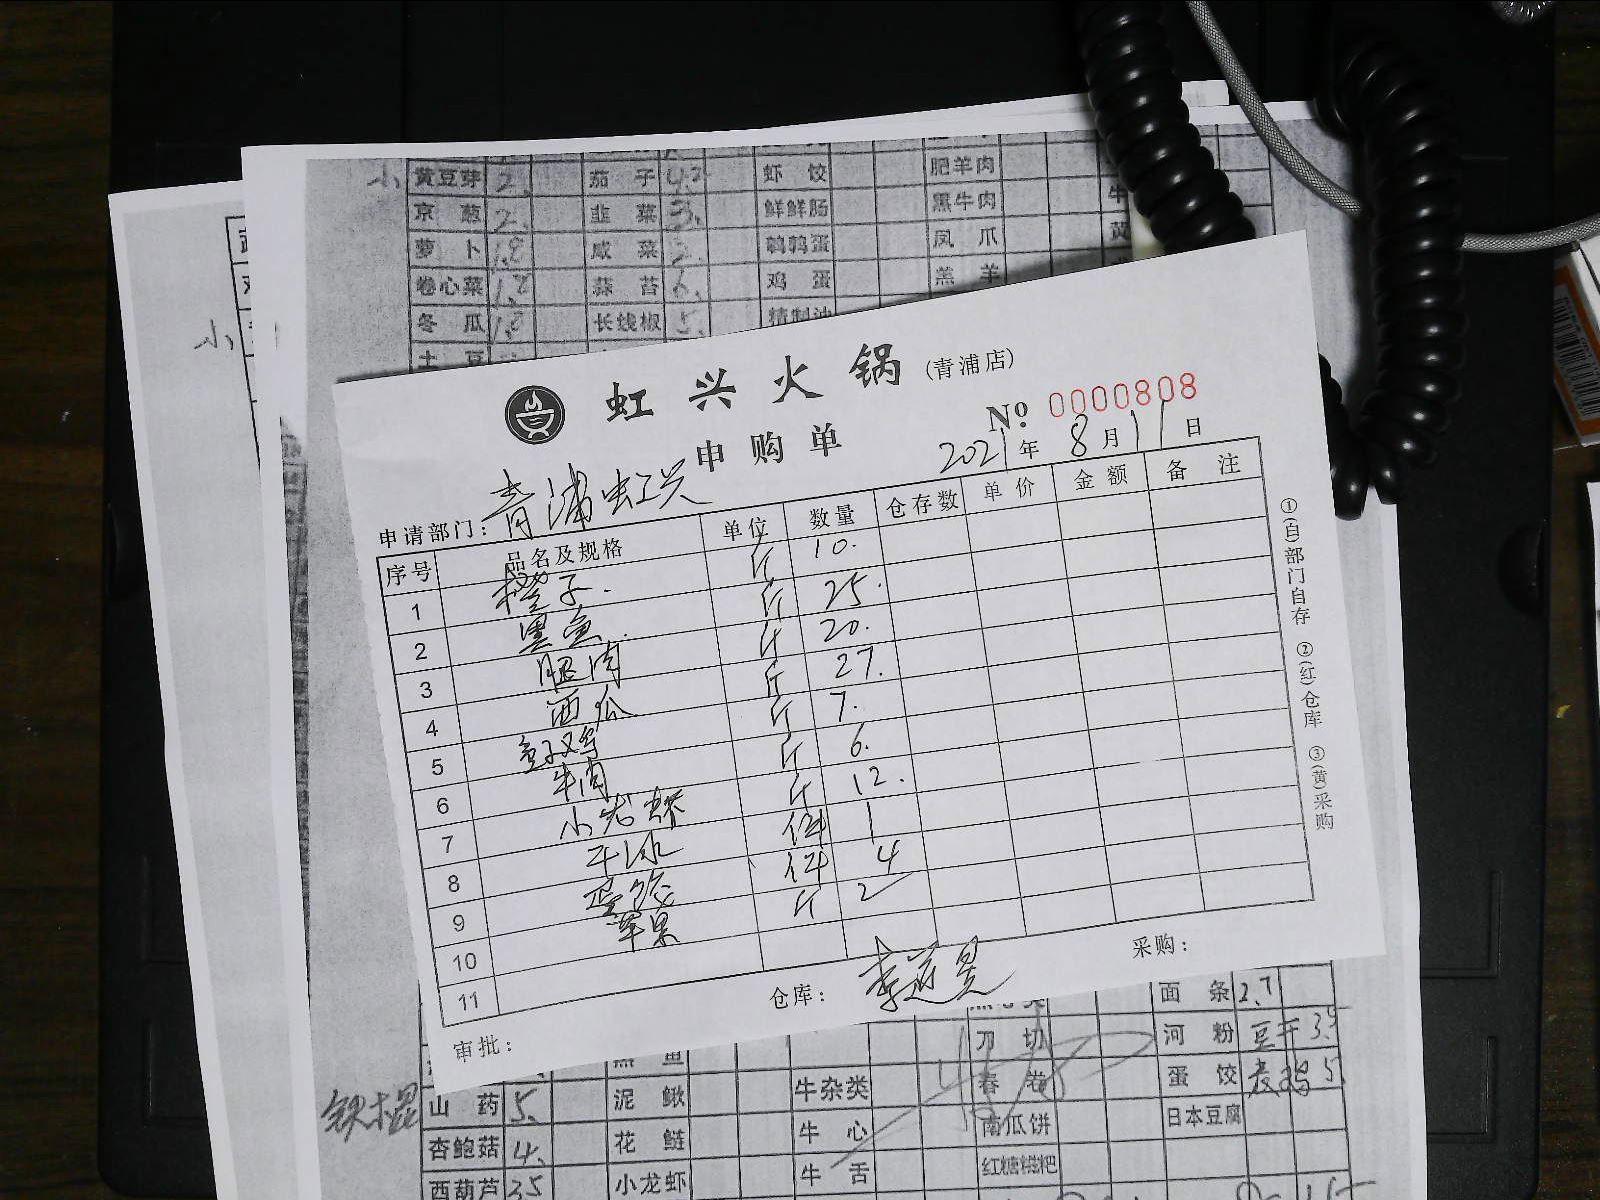 小 黄豆芽 2. 茄子 4.2 虾饺 肥羊肉
京葱 2. 韭菜 3. 鲜鲜肠 黑牛肉 牛
萝卜 1.8 咸菜 2. 鹌鹑蛋 凤爪
卷心菜 1.8 蒜苔 6. 鸡蛋 羔羊
小 冬瓜 1.8 长线椒 5. 精制油
土豆
虹兴火锅(青浦店)
№ 0000808
申购单
2021年8月11日
申请部门：青浦虹兴
序号 品名及规格 单位 数量 仓存数 单价 金额 备注
1 橙子. 斤 10.
2 黑鱼. 斤 25.
3 腿肉 斤 20.
4 西瓜 斤 27.
5 斤 7.
6 牛肉 斤 6.
7 小龙虾 斤 12.
8 干冰 件 1
9 蛋饺 件 4
10 苹果 斤 2
11
①(白)部门自存 ②(红)仓库 ③(黄)采购
审批： 仓库： 采购：
面条 2.7
刀切 河粉 豆干 3.5
鱼 牛杂类 春卷 蛋饺 5.
铁木棍 山药 5. 泥鳅 牛心 南瓜饼 日本豆腐
杏鲍菇 4. 花鲢 牛舌 红糖糍粑
西葫芦 35 小龙虾